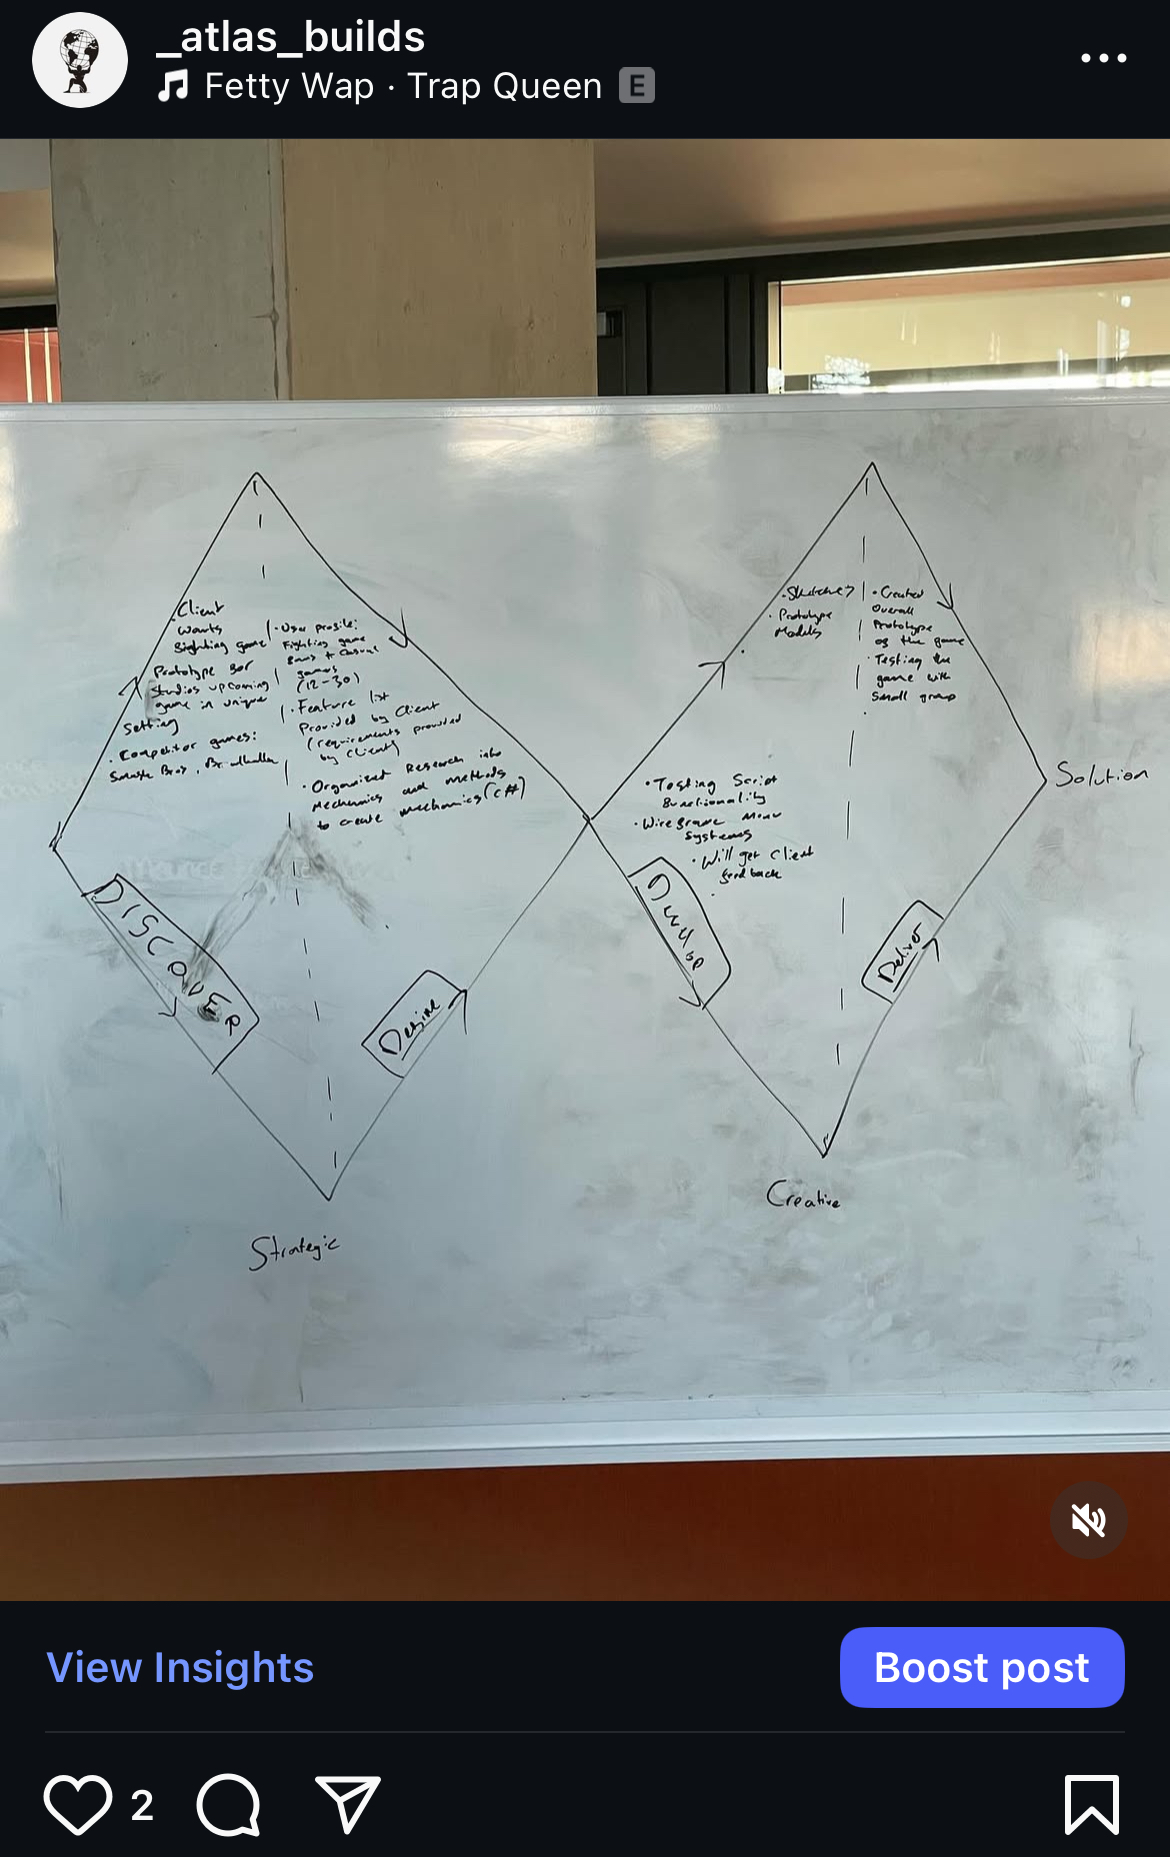 _atlas_builds
Fetty Wap · Trap Queen E
Client
wants
fighting game
Prototype for
studios upcoming
game in unique
setting
· Competitor games:
Smash Bros, Brawlhalla
· User profile:
Fighting game
fans + casual
games
(12-30)
· Feature list
Provided by Client
(requirements provided
by client)
· Organized Research into
Mechanics and methods
to create mechanics (C#)
DISCOVER
Define
Strategic
· Sketches
· Prototype
Models
· Created
Overall
Prototype
of the game
· Testing the
game with
small group
· Testing Script
functionality
· Wireframe Menu
Systems
· Will get client
feedback
Develop
Deliver
Solution
Creative
View Insights
Boost post
2